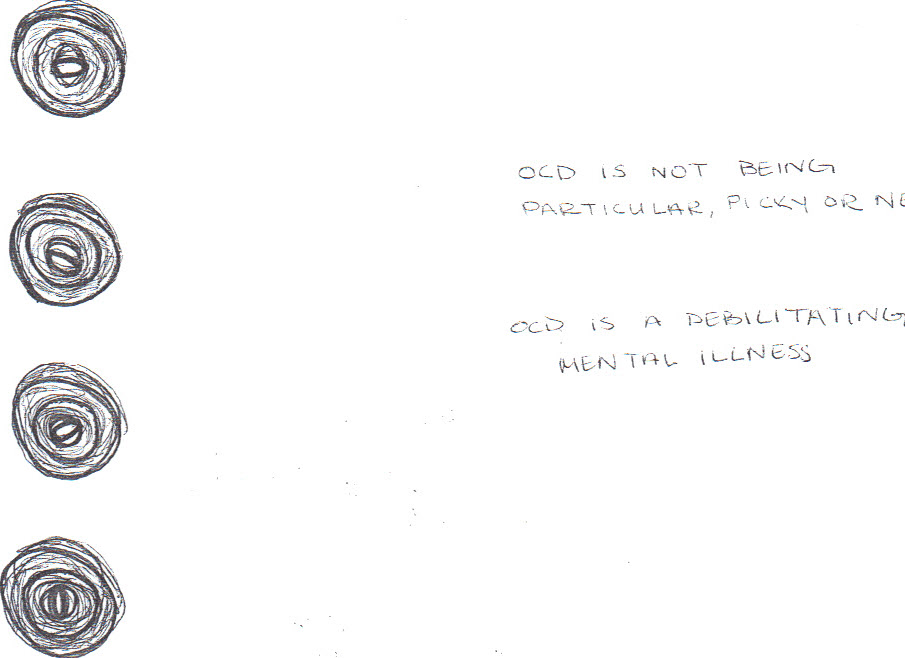 OCD IS NOT BEING
PARTICULAR, PICKY OR NE
OCD IS A DEBILITATING
MENTAL ILLNESS